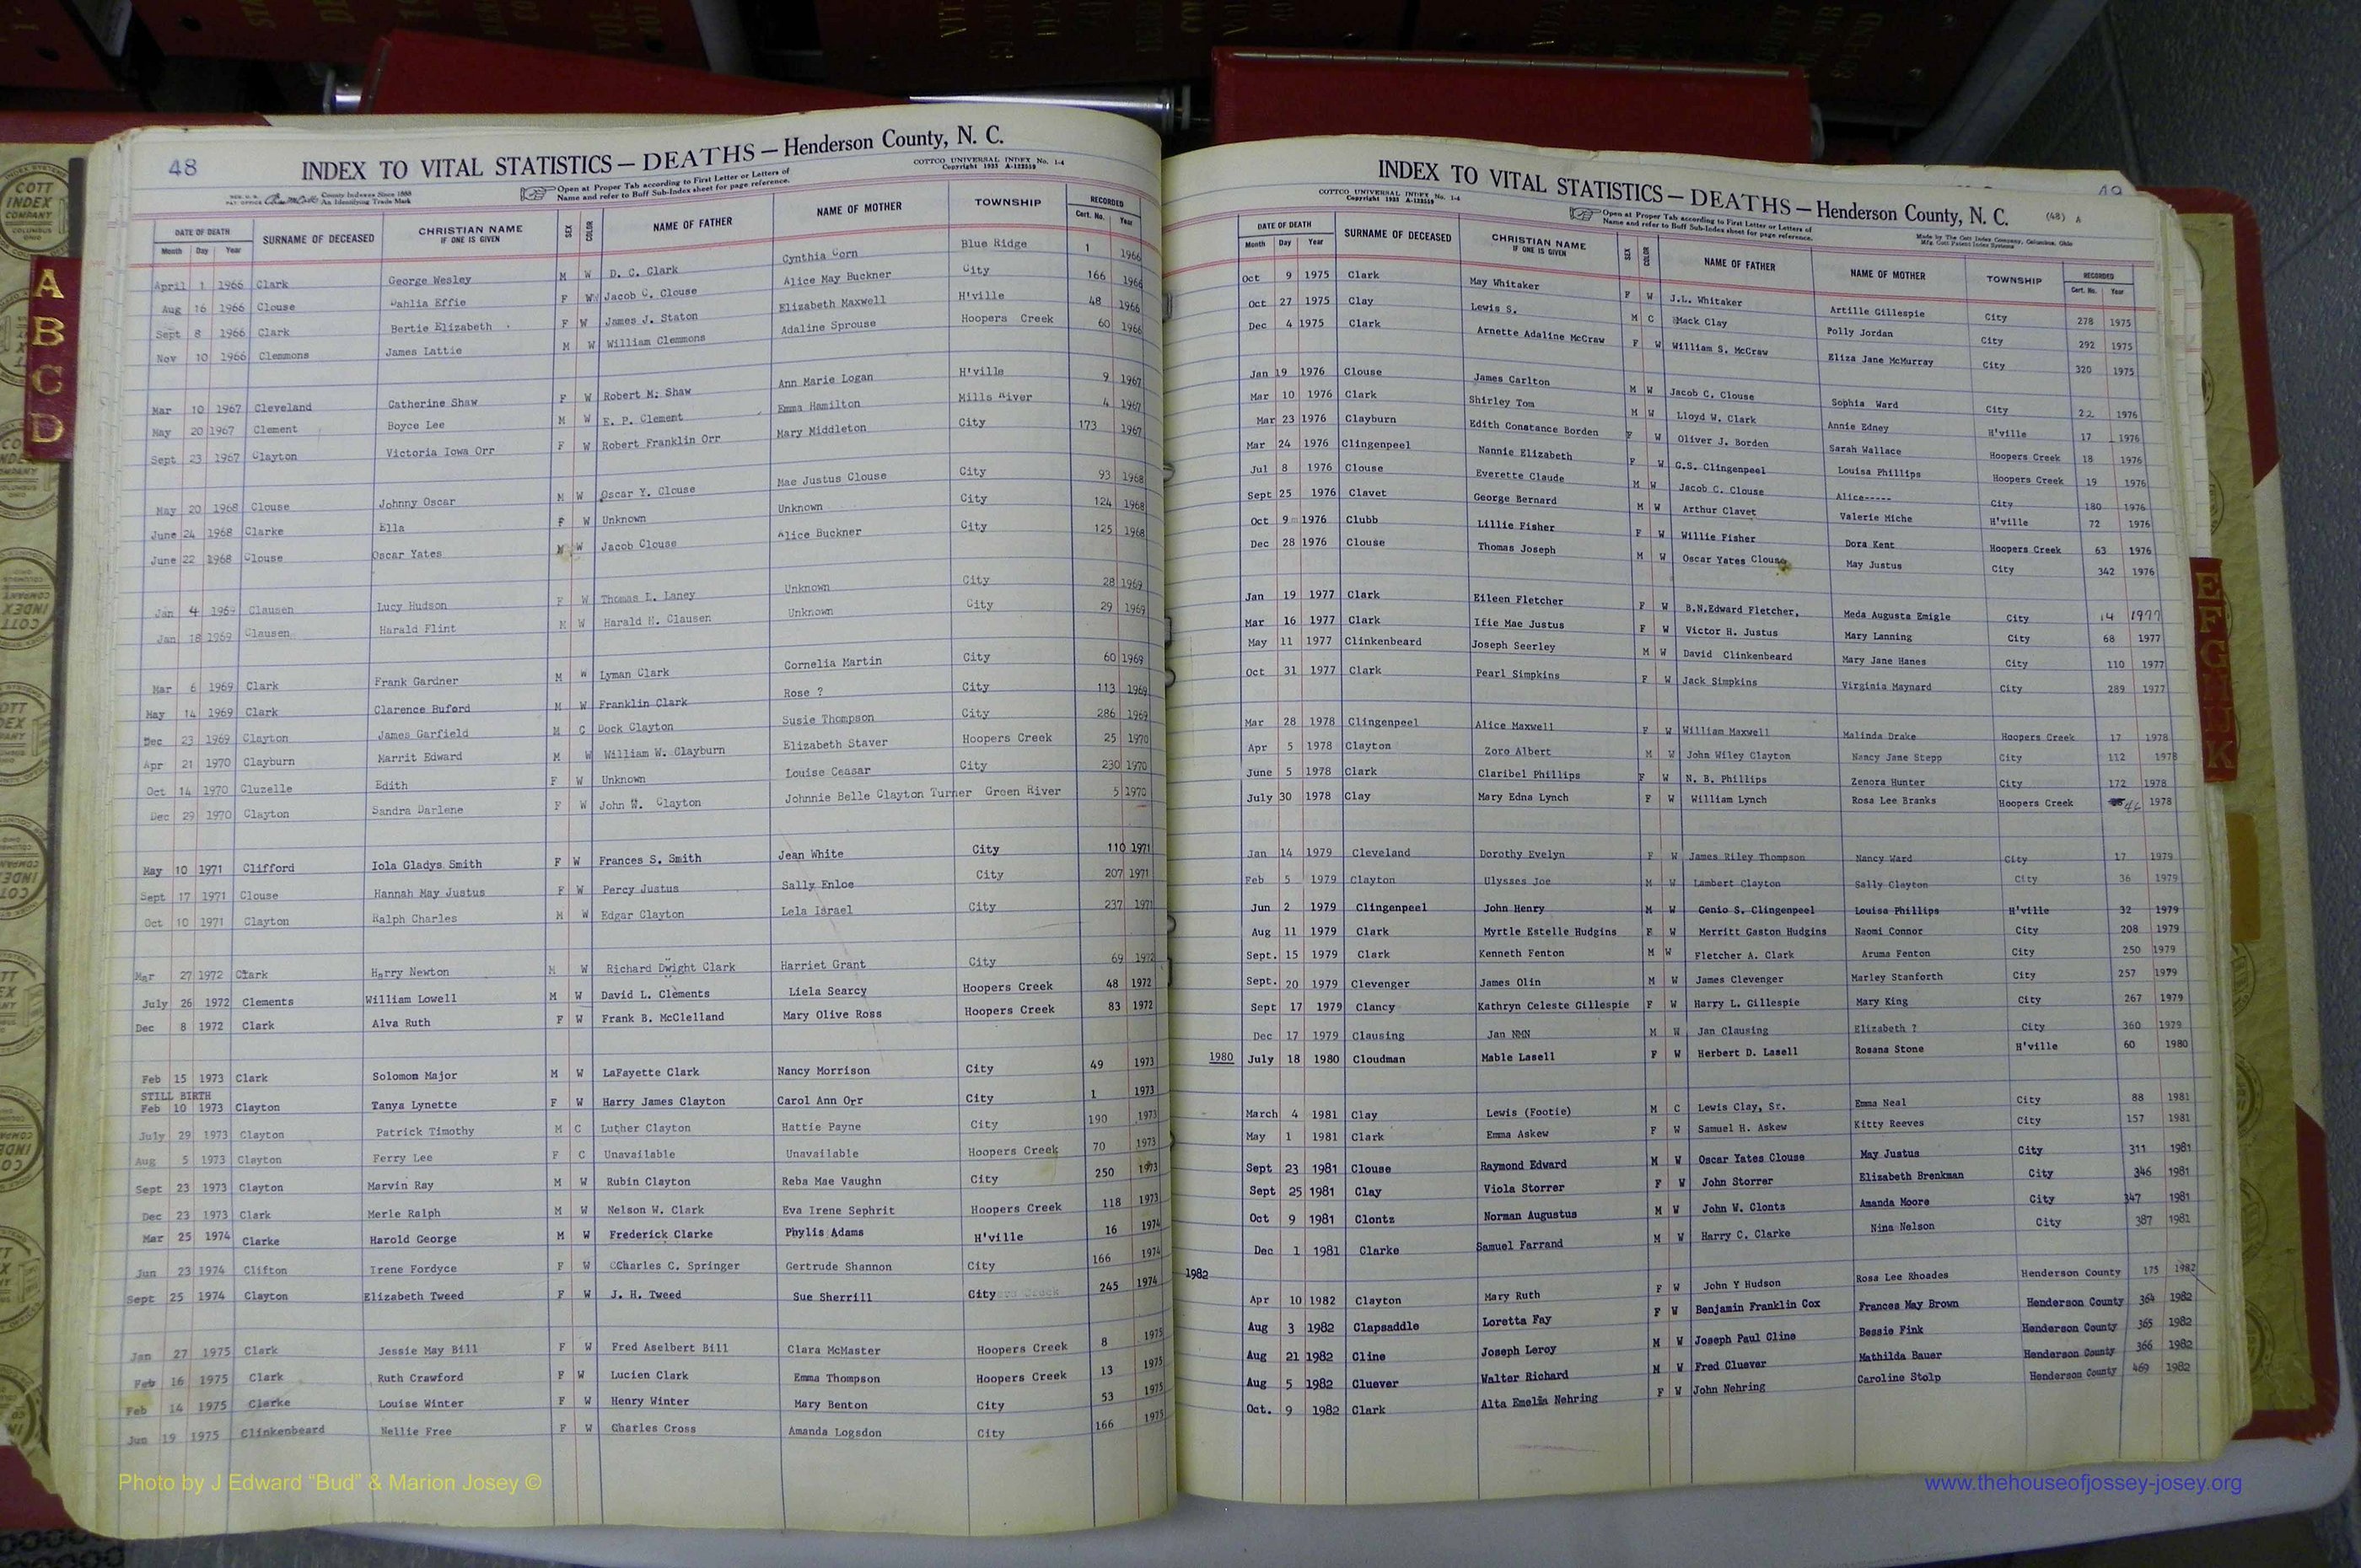 48
INDEX TO VITAL STATISTICS — DEATHS — Henderson County, N. C.
COTTCO UNIVERSAL INDEX No. 1-4
Copyright 1933 A-123519
County Indexes Since 1888
An Identifying Trade Mark
Open at Proper Tab according to First Letter or Letters of
Name and refer to Buff Sub-Index sheet for page reference.
DATE OF DEATH SURNAME OF DECEASED CHRISTIAN NAME IF ONE IS GIVEN SEX COLOR NAME OF FATHER NAME OF MOTHER TOWNSHIP RECORDED
Month Day Year Cert. No. Year
April 1 1966 Clark George Wesley M W D. C. Clark Cynthia Corn Blue Ridge 1 1966
Aug 16 1966 Clouse Dahlia Effie F W Jacob C. Clouse Alice May Buckner City 166 1966
Sept 8 1966 Clark Bertie Elizabeth F W James J. Staton Elizabeth Maxwell H'ville 48 1966
Nov 10 1966 Clemmons James Lattie M W William Clemmons Adaline Sprouse Hoopers Creek 60 1966
Mar 10 1967 Cleveland Catherine Shaw F W Robert M. Shaw Ann Marie Logan H'ville 9 1967
May 20 1967 Clement Boyce Lee M W E. P. Clement Emma Hamilton Mills River 4 1967
Sept 23 1967 Clayton Victoria Iowa Orr F W Robert Franklin Orr Mary Middleton City 173 1967
May 20 1968 Clouse Johnny Oscar M W Oscar Y. Clouse Mae Justus Clouse City 93 1968
June 24 1968 Clarke Ella F W Unknown Unknown City 124 1968
June 22 1968 Clouse Oscar Yates M W Jacob Clouse Alice Buckner City 125 1968
Jan 4 1969 Clausen Lucy Hudson F W Thomas L. Laney Unknown City 28 1969
Jan 18 1969 Clausen Harald Flint M W Harald H. Clausen Unknown City 29 1969
Mar 6 1969 Clark Frank Gardner M W Lyman Clark Cornelia Martin City 60 1969
May 14 1969 Clark Clarence Buford M W Franklin Clark Rose ? City 113 1969
Dec 23 1969 Clayton James Garfield M C Dock Clayton Susie Thompson City 286 1969
Apr 21 1970 Clayburn Marrit Edward M W William W. Clayburn Elizabeth Staver Hoopers Creek 25 1970
Oct 14 1970 Cluzelle Edith F W Unknown Louise Ceasar City 230 1970
Dec 29 1970 Clayton Sandra Darlene F W John W. Clayton Johnnie Belle Clayton Turner Green River 5 1970
May 10 1971 Clifford Iola Gladys Smith F W Frances S. Smith Jean White City 110 1971
Sept 17 1971 Clouse Hannah May Justus F W Percy Justus Sally Enloe City 207 1971
Oct 10 1971 Clayton Ralph Charles M W Edgar Clayton Lela Israel City 237 1971
Mar 27 1972 Clark Harry Newton M W Richard Dwight Clark Harriet Grant City 69 1972
July 26 1972 Clements William Lowell M W David L. Clements Liela Searcy Hoopers Creek 48 1972
Dec 8 1972 Clark Alva Ruth F W Frank B. McClelland Mary Olive Ross Hoopers Creek 83 1972
Feb 15 1973 Clark Solomon Major M W LaFayette Clark Nancy Morrison City 49 1973
STILL BIRTH
Feb 10 1973 Clayton Tanya Lynette F W Harry James Clayton Carol Ann Orr City 1 1973
July 29 1973 Clayton Patrick Timothy M C Luther Clayton Hattie Payne City 190 1973
Aug 5 1973 Clayton Ferry Lee F C Unavailable Unavailable Hoopers Creek 70 1973
Sept 23 1973 Clayton Marvin Ray M W Rubin Clayton Reba Mae Vaughn City 250 1973
Dec 23 1973 Clark Merle Ralph M W Nelson W. Clark Eva Irene Sephrit Hoopers Creek 118 1973
Mar 25 1974 Clarke Harold George M W Frederick Clarke Phylis Adams H'ville 16 1974
Jun 23 1974 Clifton Irene Fordyce F W CCharles C. Springer Gertrude Shannon City 166 1974
Sept 25 1974 Clayton Elizabeth Tweed F W J. H. Tweed Sue Sherrill City 245 1974
Jan 27 1975 Clark Jessie May Bill F W Fred Aselbert Bill Clara McMaster Hoopers Creek 8 1975
Feb 16 1975 Clark Ruth Crawford F W Lucien Clark Emma Thompson Hoopers Creek 13 1975
Feb 14 1975 Clarke Louise Winter F W Henry Winter Mary Benton City 53 1975
Jun 19 1975 Clinkenbeard Nellie Free F W Charles Cross Amanda Logsdon City 166 1975
49
INDEX TO VITAL STATISTICS — DEATHS — Henderson County, N. C.
(48) A
COTTCO UNIVERSAL INDEX No. 1-4
Copyright 1933 A-123519
Open at Proper Tab according to First Letter or Letters of
Name and refer to Buff Sub-Index sheet for page reference.
Made by The Cott Index Company, Columbus, Ohio
Mfg. Cott Patent Index Systems
DATE OF DEATH SURNAME OF DECEASED CHRISTIAN NAME IF ONE IS GIVEN SEX COLOR NAME OF FATHER NAME OF MOTHER TOWNSHIP RECORDED
Month Day Year Cert. No. Year
Oct 9 1975 Clark May Whitaker F W J.L. Whitaker Artille Gillespie City 278 1975
Oct 27 1975 Clay Lewis S. M C Mack Clay Polly Jordan City 292 1975
Dec 4 1975 Clark Arnette Adaline McCraw F W William S. McCraw Eliza Jane McMurray City 320 1975
Jan 19 1976 Clouse James Carlton M W Jacob C. Clouse Sophia Ward City 22 1976
Mar 10 1976 Clark Shirley Tom M W Lloyd W. Clark Annie Edney H'ville 17 1976
Mar 23 1976 Clayburn Edith Constance Borden F W Oliver J. Borden Sarah Wallace Hoopers Creek 18 1976
Mar 24 1976 Clingenpeel Nannie Elizabeth F W G.S. Clingenpeel Louisa Phillips Hoopers Creek 19 1976
Jul 8 1976 Clouse Everette Claude M W Jacob C. Clouse Alice----- City 180 1976
Sept 25 1976 Clavet George Bernard M W Arthur Clavet Valerie Miche H'ville 72 1976
Oct 9 1976 Clubb Lillie Fisher F W Willie Fisher Dora Kent Hoopers Creek 63 1976
Dec 28 1976 Clouse Thomas Joseph M W Oscar Yates Clouse May Justus City 342 1976
Jan 19 1977 Clark Eileen Fletcher F W B.N.Edward Fletcher, Meda Augusta Emigle City 14 1977
Mar 16 1977 Clark Ifie Mae Justus F W Victor H. Justus Mary Lanning City 68 1977
May 11 1977 Clinkenbeard Joseph Seerley M W David Clinkenbeard Mary Jane Hanes City 110 1977
Oct 31 1977 Clark Pearl Simpkins F W Jack Simpkins Virginia Maynard City 289 1977
Mar 28 1978 Clingenpeel Alice Maxwell F W William Maxwell Malinda Drake Hoopers Creek 17 1978
Apr 5 1978 Clayton Zoro Albert M W John Wiley Clayton Nancy Jane Stepp City 112 1978
June 5 1978 Clark Claribel Phillips F W N. B. Phillips Zenora Hunter City 172 1978
July 30 1978 Clay Mary Edna Lynch F W William Lynch Rosa Lee Branks Hoopers Creek 46 1978
Jan 14 1979 Cleveland Dorothy Evelyn F W James Riley Thompson Nancy Ward City 17 1979
Feb 5 1979 Clayton Ulysses Joe M W Lambert Clayton Sally Clayton City 36 1979
Jun 2 1979 Clingenpeel John Henry M W Genio S. Clingenpeel Louisa Phillips H'ville 32 1979
Aug 11 1979 Clark Myrtle Estelle Hudgins F W Merritt Gaston Hudgins Naomi Connor City 208 1979
Sept. 15 1979 Clark Kenneth Fenton M W Fletcher A. Clark Aruma Fenton City 250 1979
Sept. 20 1979 Clevenger James Olin M W James Clevenger Marley Stanforth City 257 1979
Sept 17 1979 Clancy Kathryn Celeste Gillespie F W Harry L. Gillespie Mary King City 267 1979
Dec 17 1979 Clausing Jan NMN M W Jan Clausing Elizabeth ? City 360 1979
1980 July 18 1980 Cloudman Mable Lasell F W Herbert D. Lasell Rosana Stone H'ville 60 1980
March 4 1981 Clay Lewis (Footie) M C Lewis Clay, Sr. Emma Neal City 88 1981
May 1 1981 Clark Emma Askew F W Samuel H. Askew Kitty Reeves City 157 1981
Sept 23 1981 Clouse Raymond Edward M W Oscar Yates Clouse May Justus City 311 1981
Sept 25 1981 Clay Viola Storrer F W John Storrer Elizabeth Brenkman City 346 1981
Oct 9 1981 Clontz Norman Augustus M W John W. Clontz Amanda Moore City 347 1981
Dec 1 1981 Clarke Samuel Farrand M W Harry C. Clarke Nina Nelson City 387 1981
1982
Apr 10 1982 Clayton Mary Ruth F W John Y Hudson Rosa Lee Rhoades Henderson County 175 1982
Aug 3 1982 Clapsaddle Loretta Fay F W Benjamin Franklin Cox Frances May Brown Henderson County 364 1982
Aug 21 1982 Cline Joseph Leroy M W Joseph Paul Cline Bessie Fink Henderson County 365 1982
Aug 5 1982 Cluever Walter Richard M W Fred Cluever Mathilda Bauer Henderson County 366 1982
Oct. 9 1982 Clark Alta Emelia Nehring F W John Nehring Caroline Stolp Henderson County 469 1982
A
B
C
D
E
F
G
COTT
INDEX
COMPANY
COLUMBUS
OHIO
Photo by J Edward “Bud” & Marion Josey ©
www.thehouseofjossey-josey.org